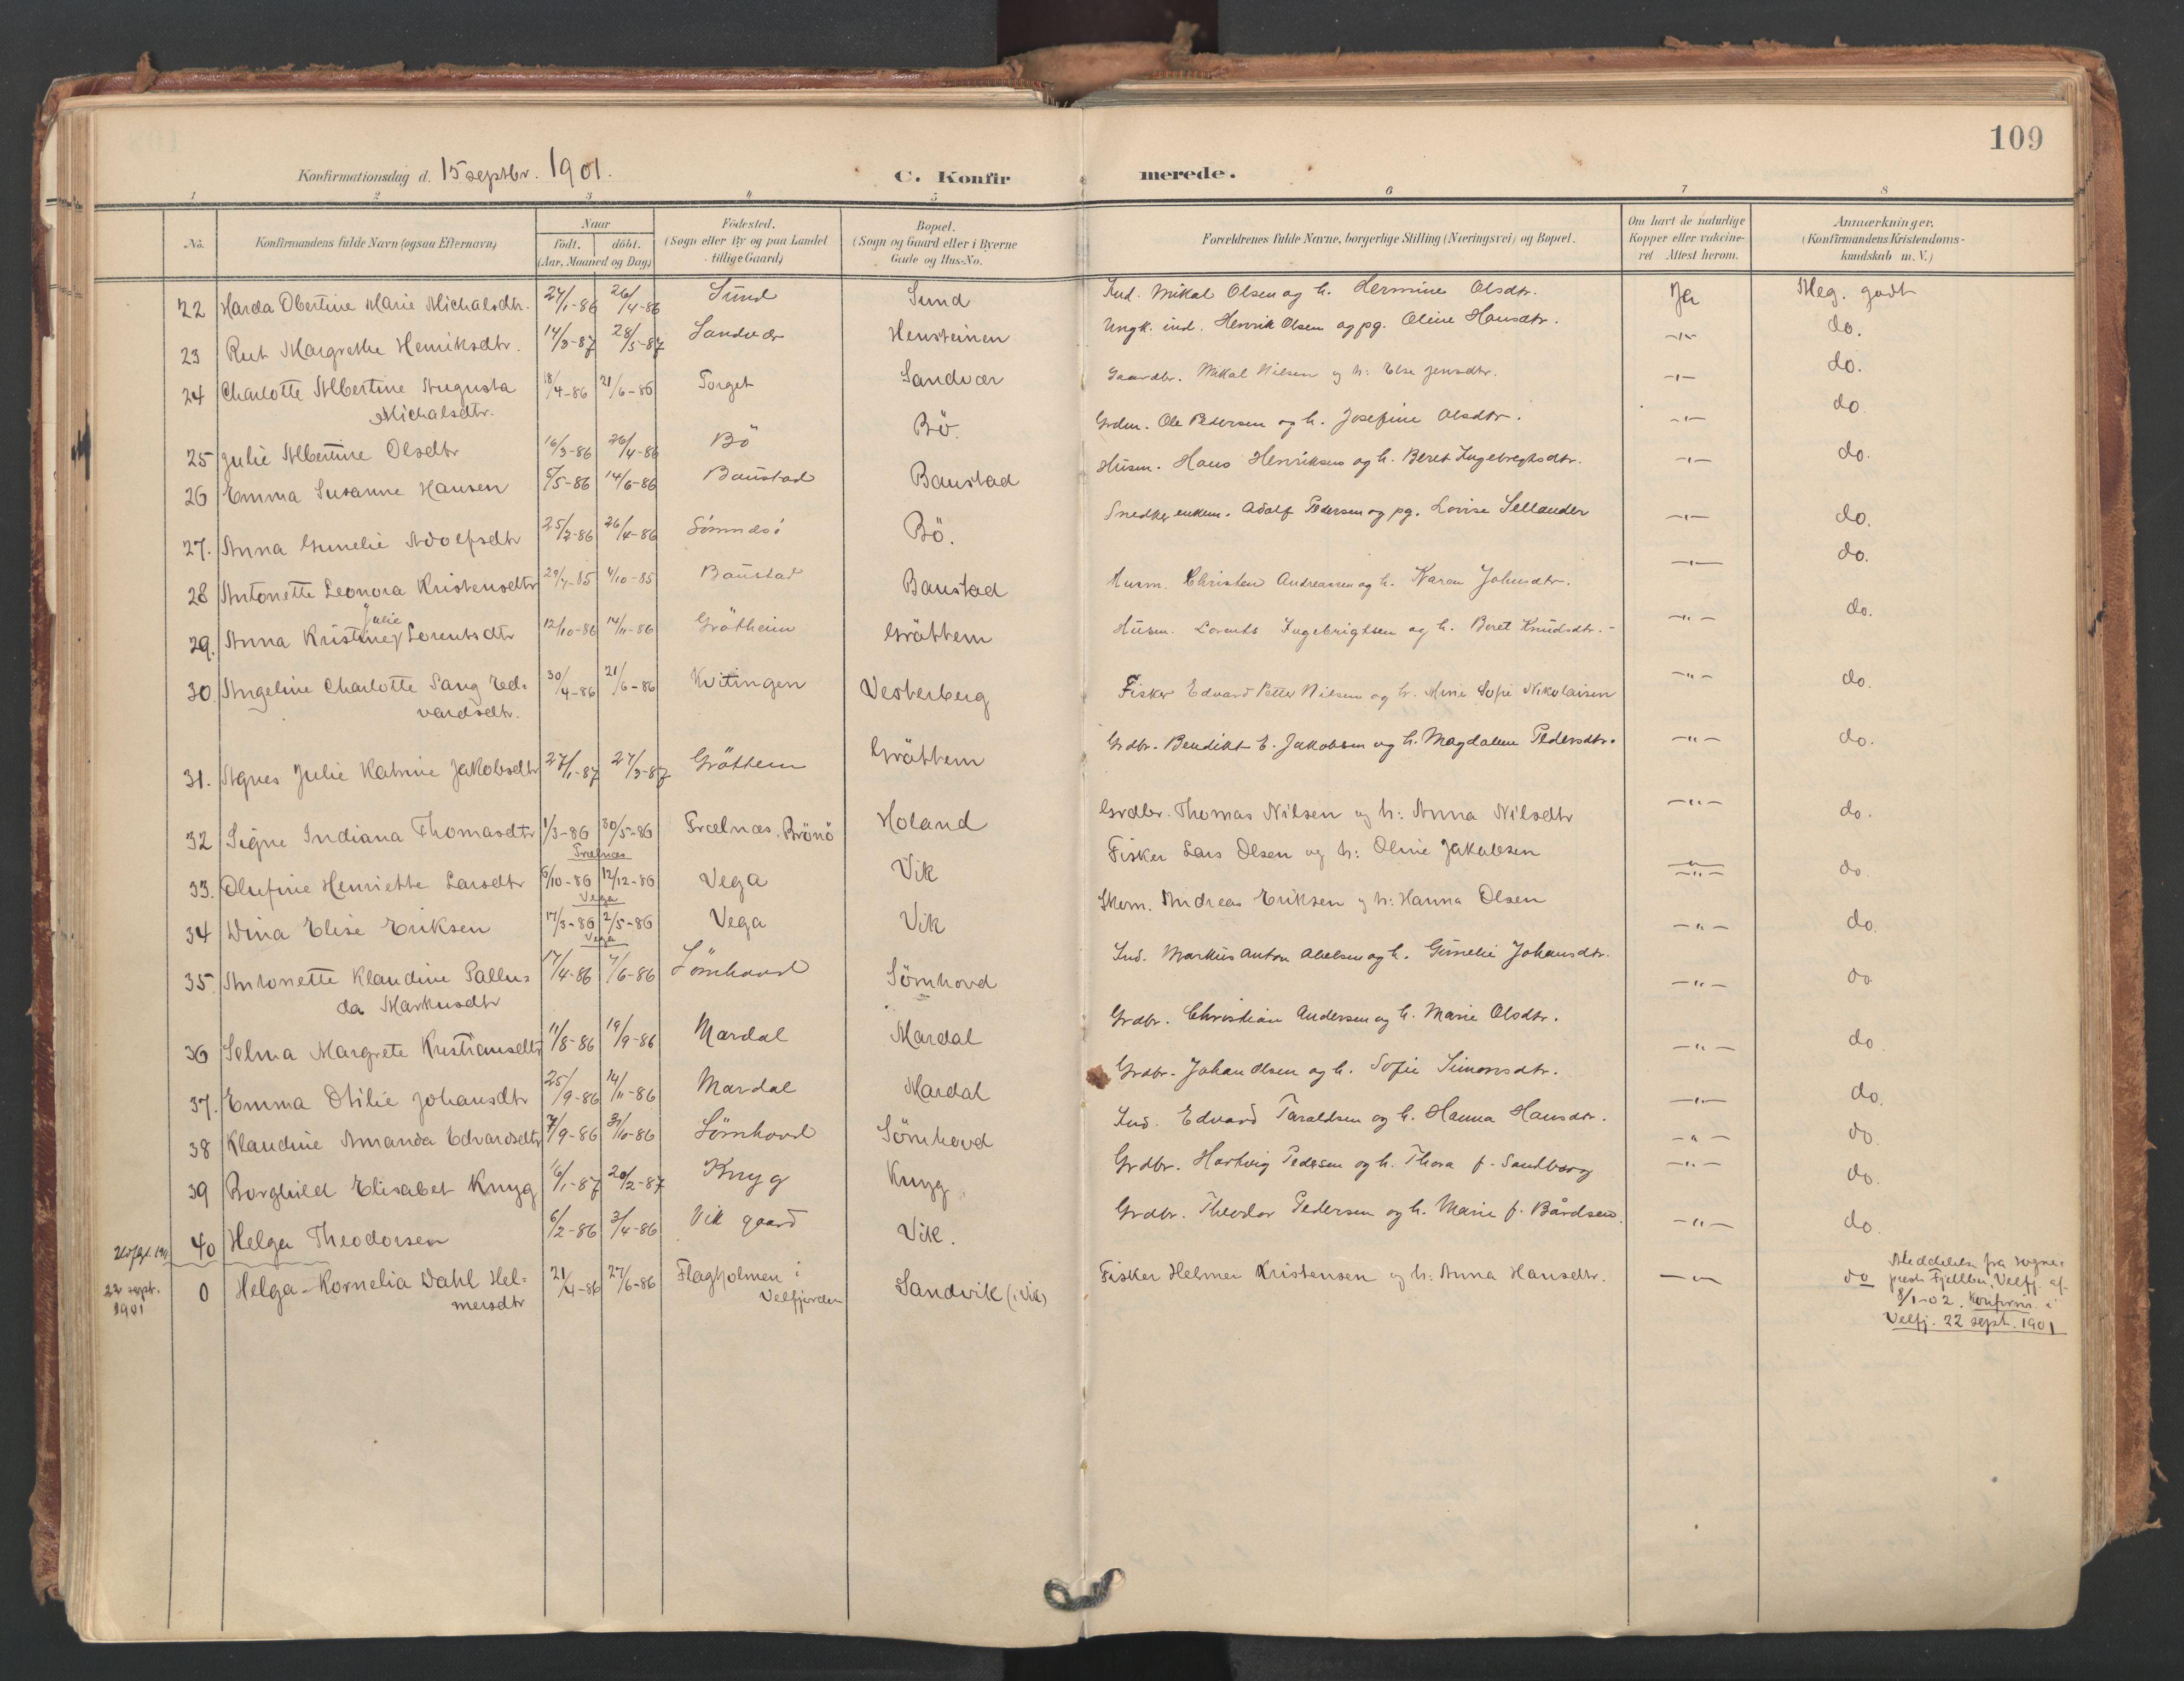 109
Konfirmationsdag d. 15 septbr. 1901.
C. Konfirmerede.
1 2 3 4 5 6 7 8
No. Konfirmandens fulde Navn (ogsaa Efternavn) Naar født. døbt. (Aar, Maaned og Dag) Fødested. (Sogn eller By og paa Landet tillige Gaard) Bopæl. (Sogn og Gaard eller i Byerne Gade og Hus-No. Forældrenes fulde Navne, borgerlige Stilling (Næringsvei) og Bopæl. Om havt de naturlige Kopper eller vakcineret Attest herom. Anmærkninger. (Konfirmandens Kristendomskundskab m. V.)
22 Harda Obertine Marie Michalsdtr. 24/1-86 26/4-86 Sund Sund Ind. Mikal Olsen og h. Hermine Olsdtr. Ja Meg. godt
23 Rut Margrethe Henriksdtr. 14/3-87 28/5-87 Sandvær Hensteinen Ungk. ind. Henrik Olsen og pg. Oline Hansdtr. -"- do.
24 Charlotte Albertine Augusta 18/4-86 21/6-86 Torget Sandvær Gaardbr. Mikal Nilsen og h: Else Jensdtr. -"- do.
Michalsdtr.
25 Julie Albertine Olsdtr 16/3-86 26/4-86 Bö Bö. Grdm. Ole Pedersen og h. Josefine Olsdtr. -"- do
26 Emma Susanne Hansen 5/5-86 14/6-86 Baustad Baustad Husm. Hans Henriksen og h. Beret Ingebregtsdtr. -"- do.
27. Anna Gunelie Adolfsdtr 25/2-86 26/4-86 Sömnes Bö. Snedker, enkem. Adolf Pedersen og pg. Lovise Sellander -"- do.
28 Antonette Leonora Kristensdtr 29/7-85 4/10-85 Baustad Baustad Husm. Christen Andreassen og h. Karen Johnsdtr. -"- do.
Julie
29. Anna Kristine Lorentsdtr 12/10-86 14/11-86 Gråtheim Gråttem Husm. Lorents Ingebrigtsen og h. Beret Knudsdtr. -"- do.
30. Angeline Charlotte Sang Ed- 30/4-86 21/6-86 Kvitingen Vesterberg Fisker Edvard Petter Nilsen og h. Marie Sofie Nikolaisen -"- do.
vardsdtr.
31. Agnes Julie Katrine Jakobsdtr 27/1-87 27/3-87 Gråttem Gråttem Grdbr. Benedikt E. Jakobsen og h. Magdalene Pedersdtr. -"- do.
32 Signe Indiana Thomasdtr 1/3-86 30/5-86 Trælnæs, Brönö Holand Grdbr. Thomas Nilsen og h: Anna Nilsdtr -"- do.
Trælnæs
33. Olufine Henriette Larsdtr 6/10-86 12/12-86 Vega Vik Fisker Lars Olsen og h: Oline Jakobsen -"- do
Vega
34 Dina Elise Eriksen 17/3-86 2/5-86 Vega Vik Skom. Andreas Eriksen og h: Hanna Olsen -"- do.
Vega
35. Antonette Klaudine Pallu- 17/4-86 7/6-86 Sömhovd Sömhovd Ind. Markus Anton Abelsen og h. Gunelie Johansdtr. -"- do
da Markusdtr
36 Selma Margrete Kristiansdtr 11/8-86 19/9-86 Mardal Mardal Grdbr. Christian Andersen og h. Marie Olsdtr. -"- do.
37. Emma Otilie Johansdtr 25/9-86 14/11-86 Mardal Mardal Grdbr. Johan Olsen og h. Sofie Simonsdtr. -"- do.
38 Klaudine Amanda Edvardsdtr 7/9-86 31/10-86 Sömhovd Sömhovd Ind. Edvard Taraldsen og h. Hanna Hansdtr. -"- do.
39 Borghild Elisabet Knyg 16/1-87 20/2-87 Knyg Knyg Grdbr. Hartvig Pedersen og h. Thora f. Sandberg -"- do.
40 Helga Theodorsen 6/2-86 3/4-86 Vik gaard Vik. Grdbr. Theodor Pedersen og h. Marie f. Bårdsen. -"- do.
22 sept. 1901 0 Helga Kornelia Dahl Hel- 21/4-86 27/6-86 Flagholmen i Sandvik (i Vik) Fisker Helmer Kristensen og h: Anna Hansdtr. -"- do
mersdtr Velfjorden
Meddelelse fra sogne-
prest Fjellbu, Velfj. af
8/1-02. Konfirm. i
Velfj. 22 sept. 1901